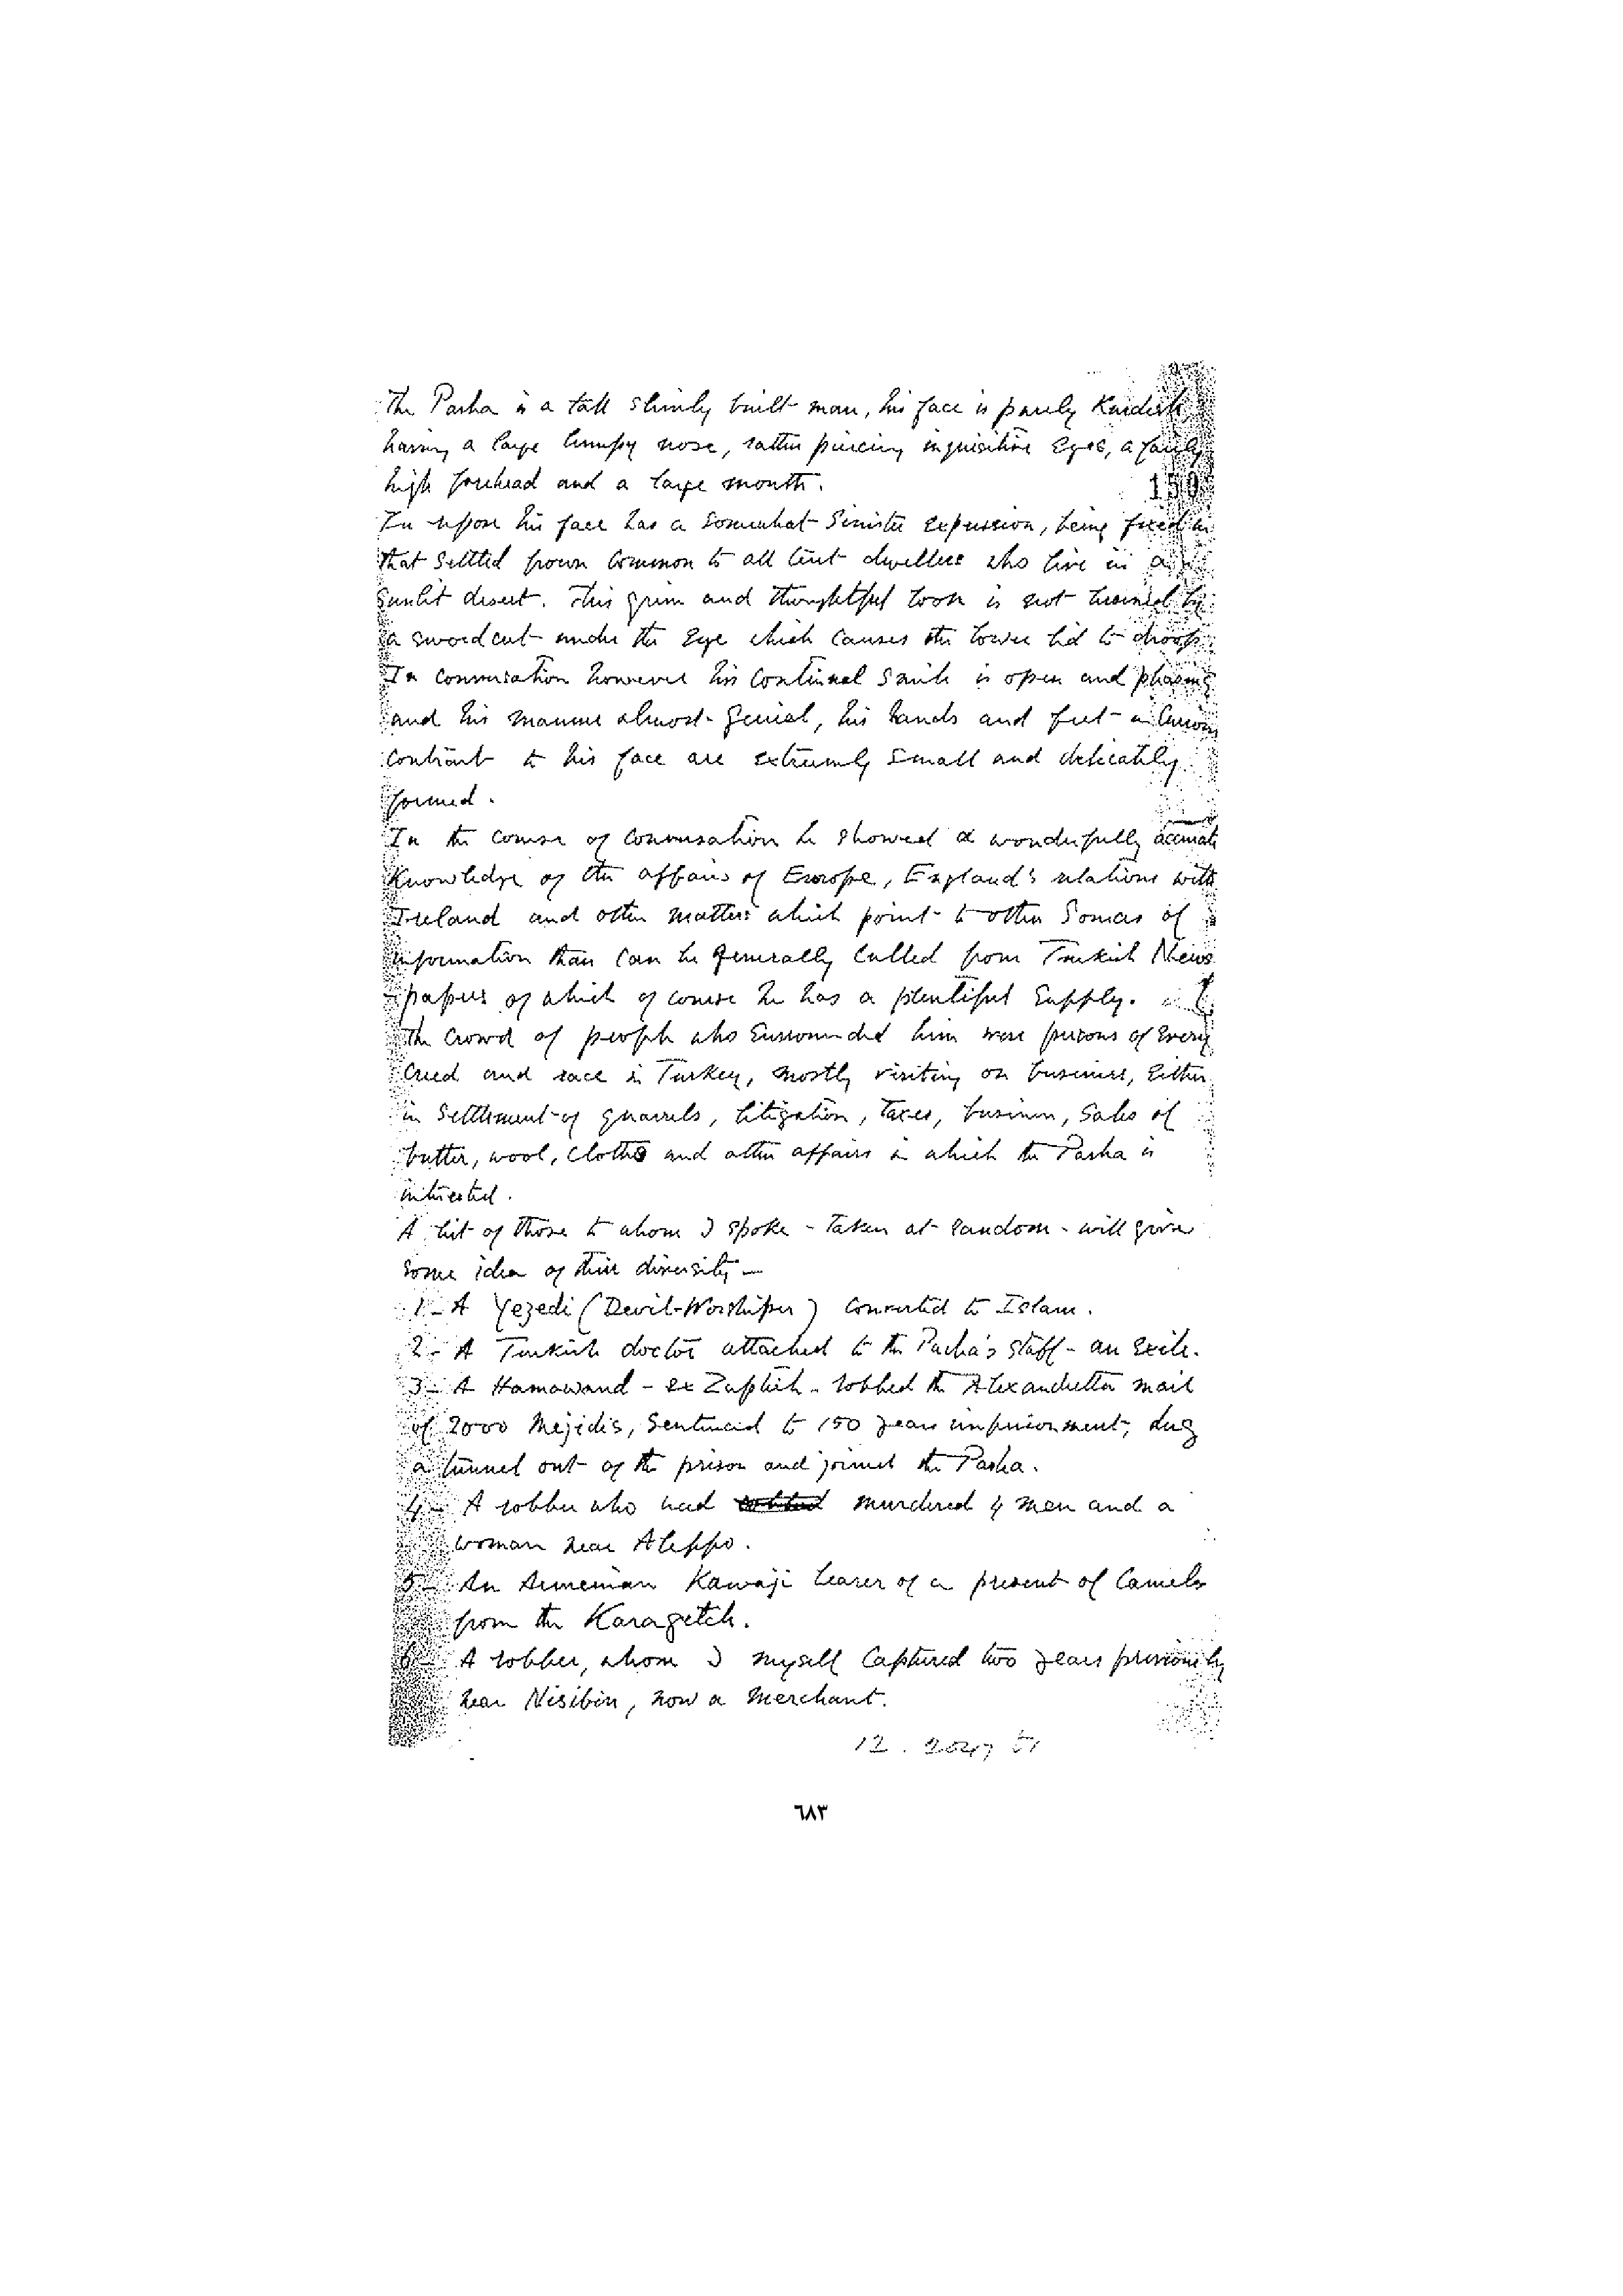 The Pasha is a tall slimly built man, his face is purely Kurdish
having a large lumpy nose, rather piercing inquisitive Eyes, a fairly
high forehead and a large mouth.
150
In repose his face has a somewhat Sinister expression, being fixed in
that settled frown Common to all tent dwellers who live in a
Sunlit desert. This grim and thoughtful look is not lessened by
a swordcut under the Eye which Causes the lower lid to droop.
In conversation however his Continual Smile is open and pleasing
and his manner almost genial, his hands and feet in Curious
Contrast to his face are extremely Small and delicately
formed.
In the course of Conversation he showed a wonderfully accurate
Knowledge of the affairs of Europe, England's relations with
Ireland and other matters which point to other Sources of
information than Can be generally Culled from Turkish News
papers of which of course he has a plentiful Supply.
The Crowd of people who Surrounded him were persons of Every
Creed and race in Turkey, mostly visiting on business, Either
in Settlement of quarrels, litigation, Taxes, business, Sales of
butter, wool, Cloths and other affairs in which the Pasha is
interested.
A list of those to whom I spoke - Taken at random - will give
Some idea of their diversity —
1 - A Yezedi (Devil-Worshiper) Converted to Islam.
2 - A Turkish doctor attached to the Pasha's Staff - an Exile.
3 - A Hamawand - ex Zaptieh - robbed the Alexandretta mail
of 2000 Mejidis, Sentenced to 150 years imprisonment, dug
a tunnel out of the prison and joined the Pasha.
4 - A robber who had murdered 4 men and a
woman near Aleppo.
5 - An Armenian Kawaji bearer of a present of Camels
from the Karagetch.
6 - A robber, whom I myself Captured two years previously
near Nisibin, now a Merchant.
٦٨٣